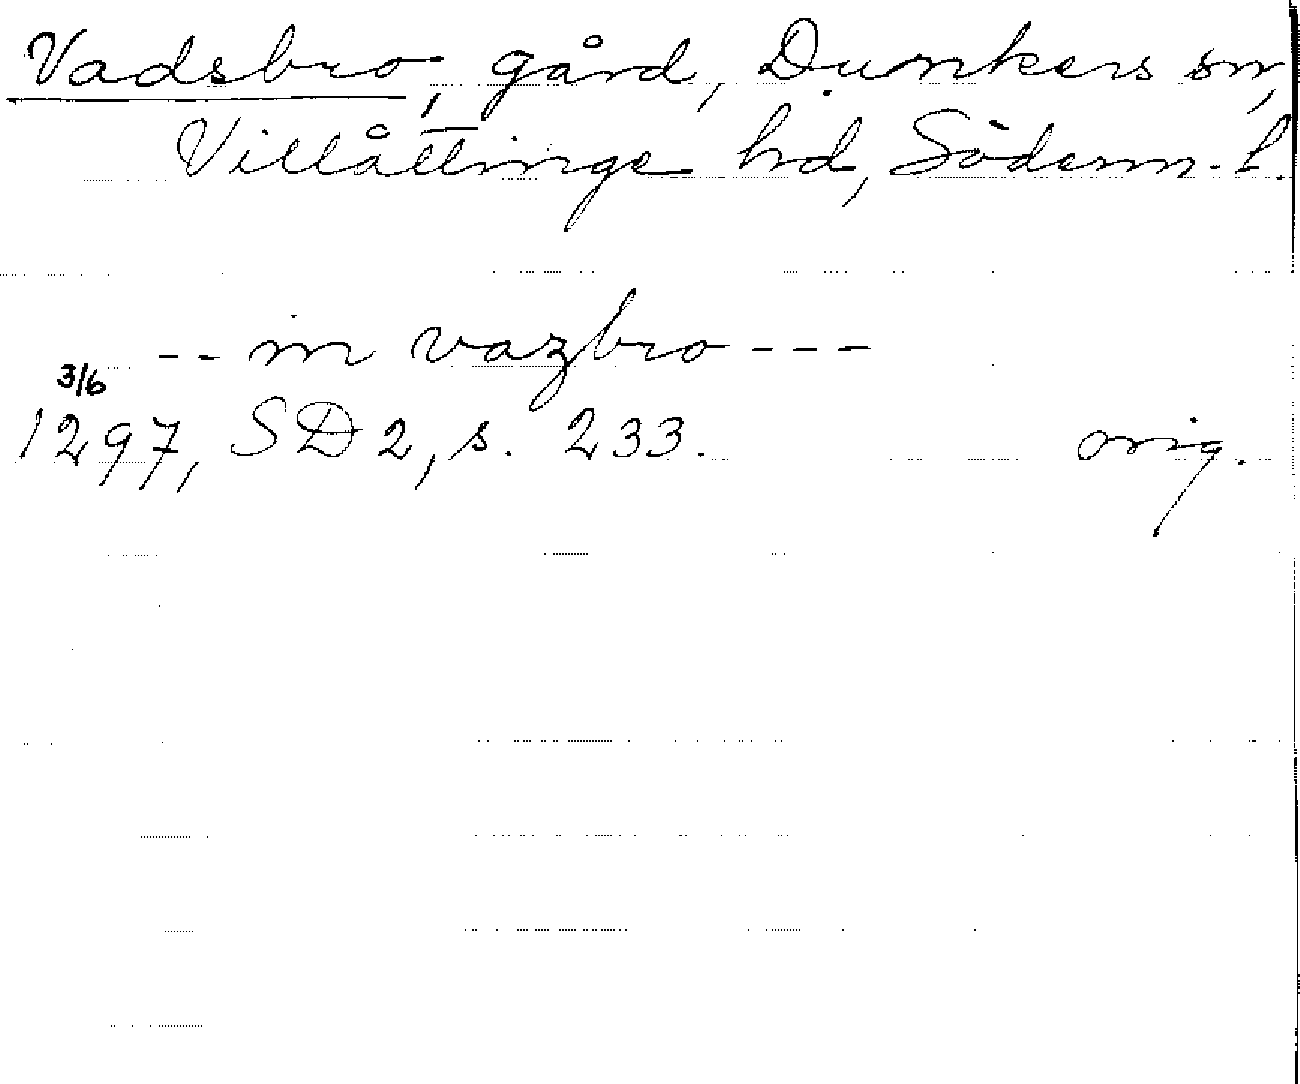 Vadsbro, gård, Dunkers sn,
Villåttinge hd, Söderm. l.
-- in vazbro ---
3/6
1297, SD 2, s. 233. orig.